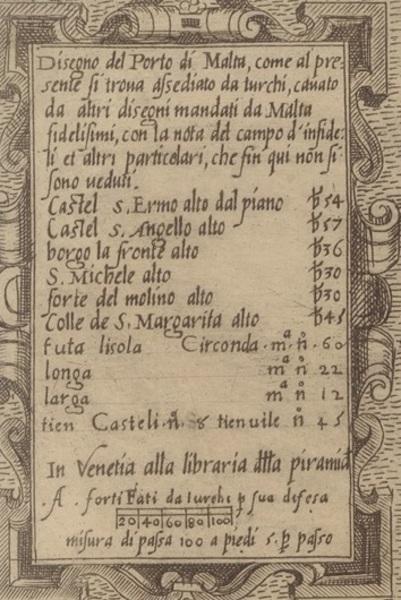 Disegno del Porto di Malta, come al pre-
sente si troua assediato da turchi, cauato
da altri disegni mandati da Malta
fidelisimi, con la nota del campo d'infide:
li et altri particolari, che fin qui non si
sono ueduti.
Castel s. Ermo alto dal piano ꝑ 54
Castel s. Angello alto ꝑ 57
borgo la fronte alto ꝑ 36
S. Michele alto ꝑ 30
forte del molino alto ꝑ 30
Colle de S. Margarita alto ꝑ 45
tuta lisola Circonda · mª n̊ · 60
longa mª n̊ 22
larga mª n̊ 12
tien Casteli · n̊ · 8 tien uile n̊ 45
In Venetia alla libraria della piramid
· A · forti fati da turchi ꝑ sua difesa
20 40 60 80 100
misura di passa 100 a piedi 5 · ꝑ passo